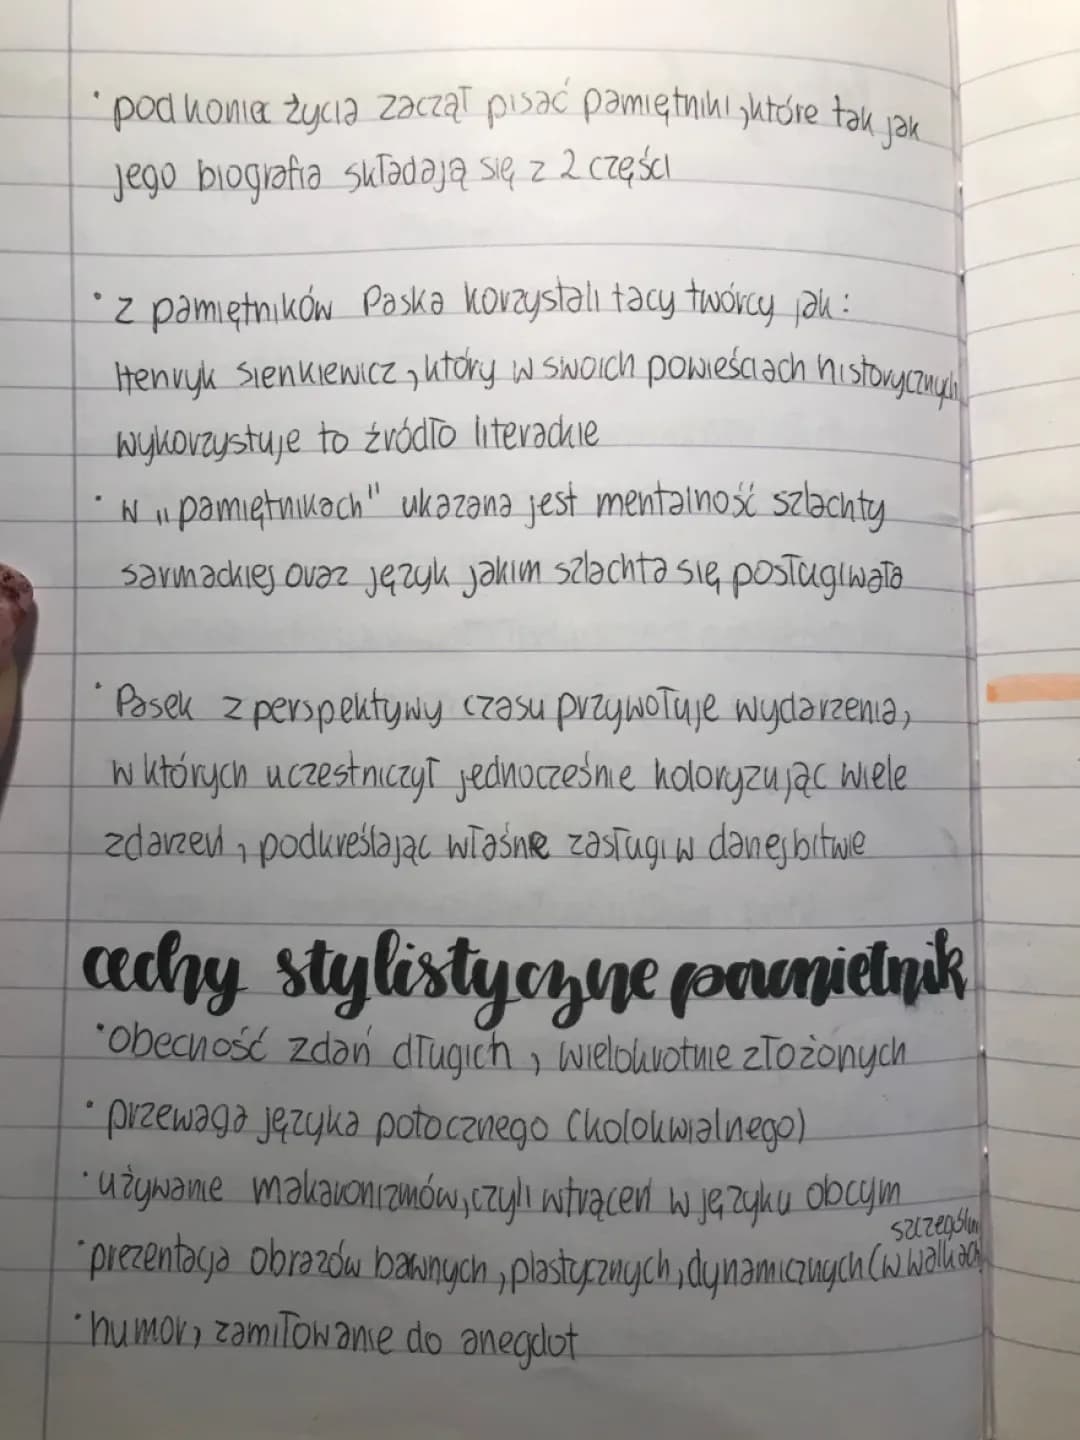 • pod koniec życia zaczął pisać pamiętniki, które tak jak
jego biografia składają się z 2 części
• z pamiętników Paska korzystali tacy twórcy jak:
Henryk Sienkiewicz, który w swoich powieściach historycznych
wykorzystuje to źródło literackie
• w „pamiętnikach" ukazana jest mentalność szlachty
sarmackiej oraz język jakim szlachta się posługiwała
• Pasek z perspektywy czasu przywołuje wydarzenia,
w których uczestniczył jednocześnie koloryzując wiele
zdarzeń, podkreślając własne zasługi w danej bitwie
cechy stylistyczne pamietnik
• obecność zdań długich, wielokrotnie złożonych
• przewaga języka potocznego (kolokwialnego)
• używanie makaronizmów, czyli wtrąceń w języku obcym
szczególn
• prezentacja obrazów barwnych, plastycznych, dynamicznych (w walkach)
• humor, zamiłowanie do anegdot